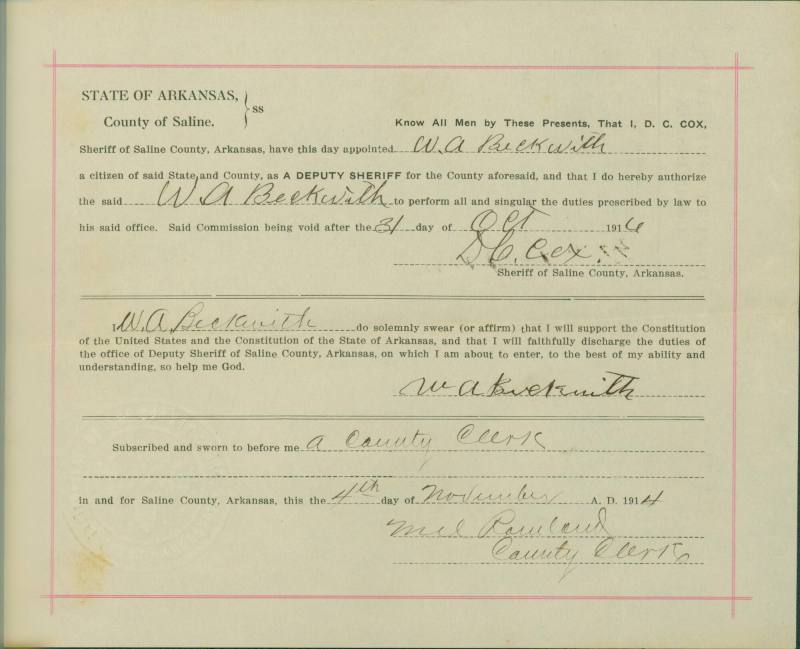 STATE OF ARKANSAS, } ss
County of Saline.
Know All Men by These Presents, That I, D. C. COX,
Sheriff of Saline County, Arkansas, have this day appointed W. A Beckwith
a citizen of said State and County, as A DEPUTY SHERIFF for the County aforesaid, and that I do hereby authorize
the said W A Beckwith to perform all and singular the duties prescribed by law to
his said office. Said Commission being void after the 31 day of Oct 1916
D. C. Cox.
Sheriff of Saline County, Arkansas.
I W. A. Beckwith do solemnly swear (or affirm) that I will support the Constitution
of the United States and the Constitution of the State of Arkansas, and that I will faithfully discharge the duties of
the office of Deputy Sheriff of Saline County, Arkansas, on which I am about to enter, to the best of my ability and
understanding, so help me God.
W A Beckwith
Subscribed and sworn to before me a County Clerk
in and for Saline County, Arkansas, this the 4th day of November A. D. 1914
Mel Rowland
County Clerk